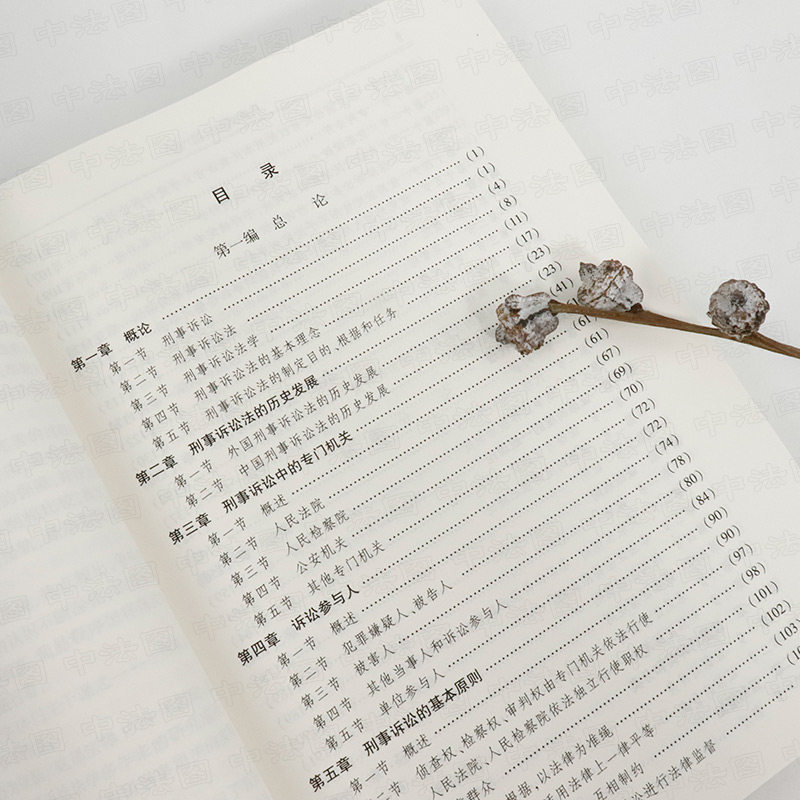 目 录
第一编 总 论
第一章 概论 (1)
第一节 刑事诉讼 (1)
第二节 刑事诉讼法 (4)
第三节 刑事诉讼法学 (8)
第四节 刑事诉讼法的基本理念 (11)
第五节 刑事诉讼法的制定目的、根据和任务 (17)
第二章 刑事诉讼法的历史发展 (23)
第一节 外国刑事诉讼法的历史发展 (23)
第二节 中国刑事诉讼法的历史发展 (41)
第三章 刑事诉讼中的专门机关 (61)
第一节 概述 (61)
第二节 人民法院 (67)
第三节 人民检察院 (69)
第四节 公安机关 (70)
第五节 其他专门机关 (72)
第四章 诉讼参与人 (72)
第一节 概述 (74)
第二节 犯罪嫌疑人、被告人 (78)
第三节 被害人 (80)
第四节 其他当事人和诉讼参与人 (84)
第五节 单位参与人 (90)
第五章 刑事诉讼的基本原则 (90)
第一节 概述 (97)
侦查权、检察权、审判权由专门机关依法行使 (98)
人民法院、人民检察院依法独立行使职权 (101)
群众 (102)
根据，以法律为准绳 (103)
用法律上一律平等
互相制约
讼进行法律监督
中法图